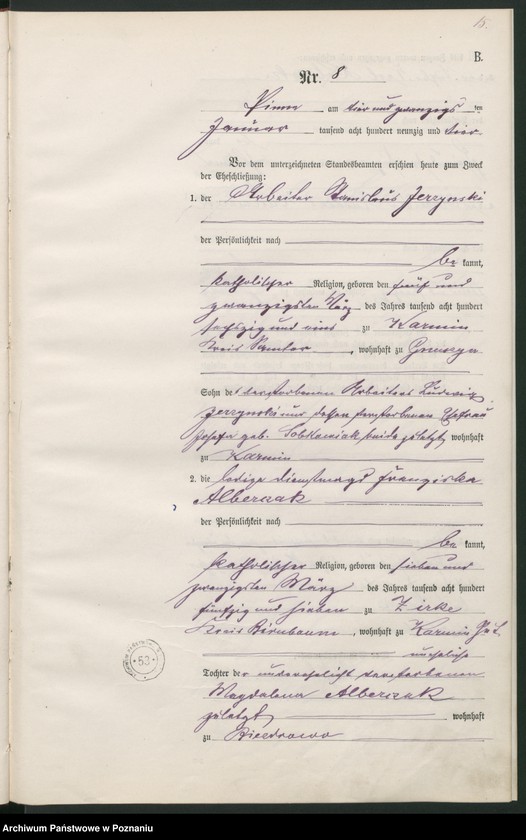 15.
B.
Nr. 8
Pinne am vier und zwanzigs ten
Januar tausend acht hundert neunzig und vier
Vor dem unterzeichneten Standesbeamten erschien heute zum Zweck
der Eheschließung:
1. der Arbeiter Stanislaus Jerzynski
der Persönlichkeit nach
be kannt,
katholischer Religion, geboren den fünf und
zwanzigsten März des Jahres tausend acht hundert
sechszig und eins zu Karmin
Kreis Samter, wohnhaft zu
Sohn des verstorbenen Arbeiters Ludwig
Jerzynski und dessen verstorbenen Ehefrau
Josefa geb. Sobkowiak beide zuletzt wohnhaft
zu Karmin
2. die ledige Dienstmagd Franziska
Alberczak
der Persönlichkeit nach
be kannt,
katholischer Religion, geboren den sieben und
zwanzigsten März des Jahres tausend acht hundert
fünfzig und sieben zu Zirke
Kreis Birnbaum, wohnhaft zu Karmin
uneheliche
Tochter der unverehelicht verstorbenen
Magdalena Alberczak
zuletzt wohnhaft
zu Biezdrowo
53
Archiwum Państwowe w Poznaniu